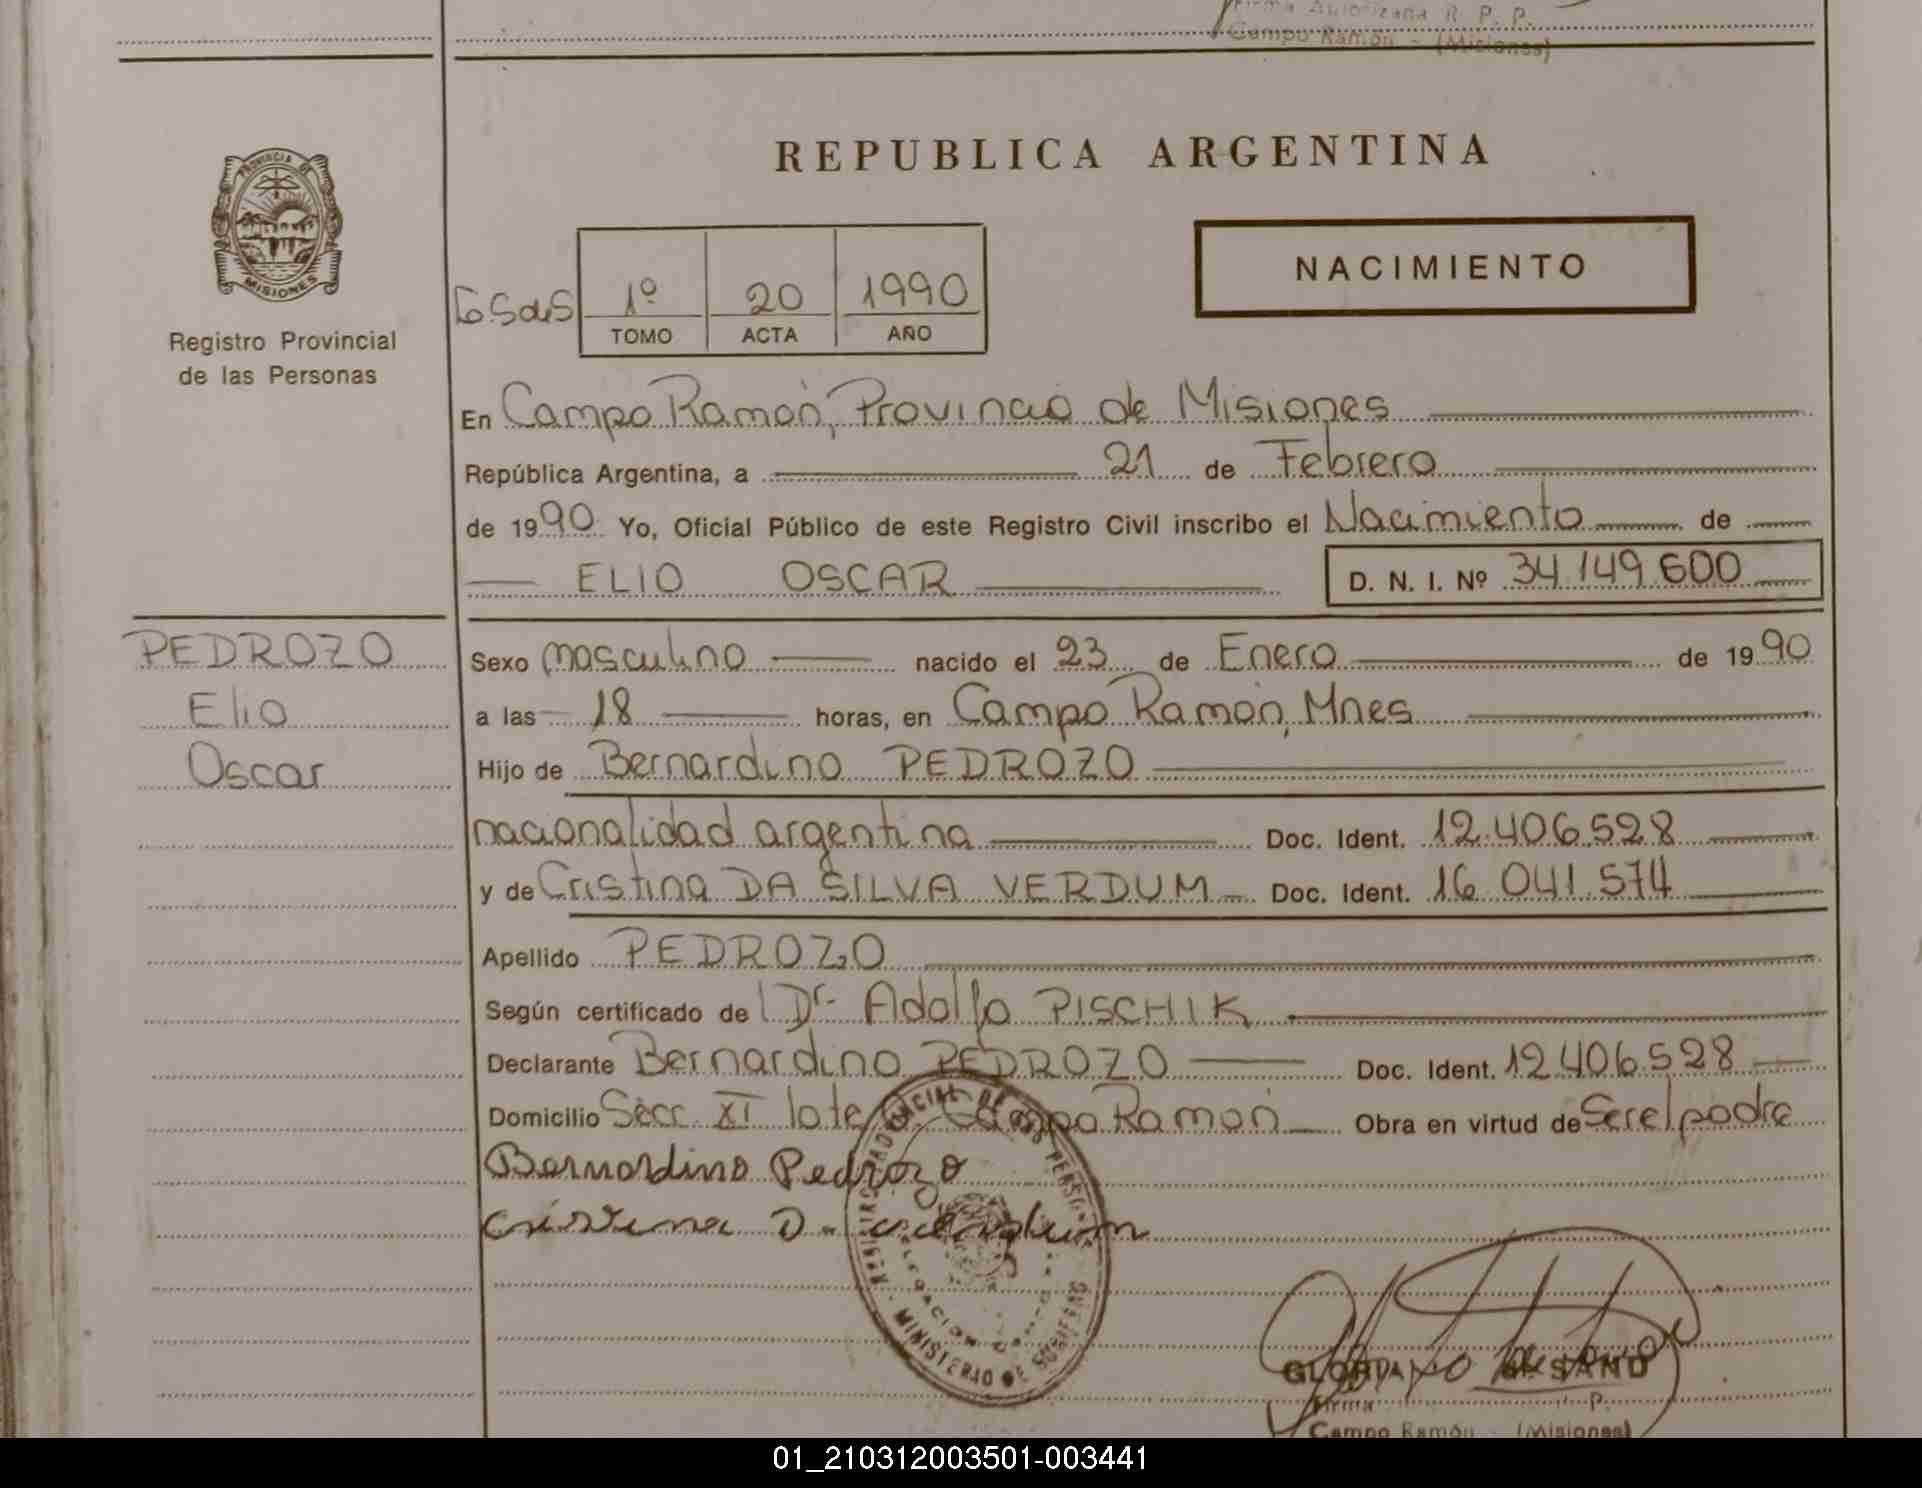 Firma Autorizada R. P. P.
Campo Ramón - (Misiones)
PROVINCIA DE
MISIONES
Registro Provincial
de las Personas
REPUBLICA ARGENTINA
NACIMIENTO
1º 20 1990
TOMO ACTA AÑO
En Campo Ramón, Provincia de Misiones
República Argentina, a 21 de Febrero
de 1990 Yo, Oficial Público de este Registro Civil inscribo el Nacimiento de
ELIO OSCAR D. N. I. Nº 34.149.600
PEDROZO
Elio
Oscar
Sexo masculino nacido el 23 de Enero de 1990
a las 18 horas, en Campo Ramón, Mnes
Hijo de Bernardino PEDROZO
nacionalidad argentina Doc. Ident. 12.406.528
y de Cristina DA SILVA VERDUM Doc. Ident. 16.041.574
Apellido PEDROZO
Según certificado de Dr. Adolfo PISCHIK
Declarante Bernardino PEDROZO Doc. Ident. 12.406.528
Domicilio Secc. XI lote Campo Ramón Obra en virtud de Ser el padre
Bernardino Pedrozo
Cristina D.
REGISTRO PROVINCIAL DE LAS PERSONAS
DELEGACION
MINISTERIO DE GOBIERNO
GLORIA
Firma P.
Campo Ramón - (Misiones)
01_210312003501-003441